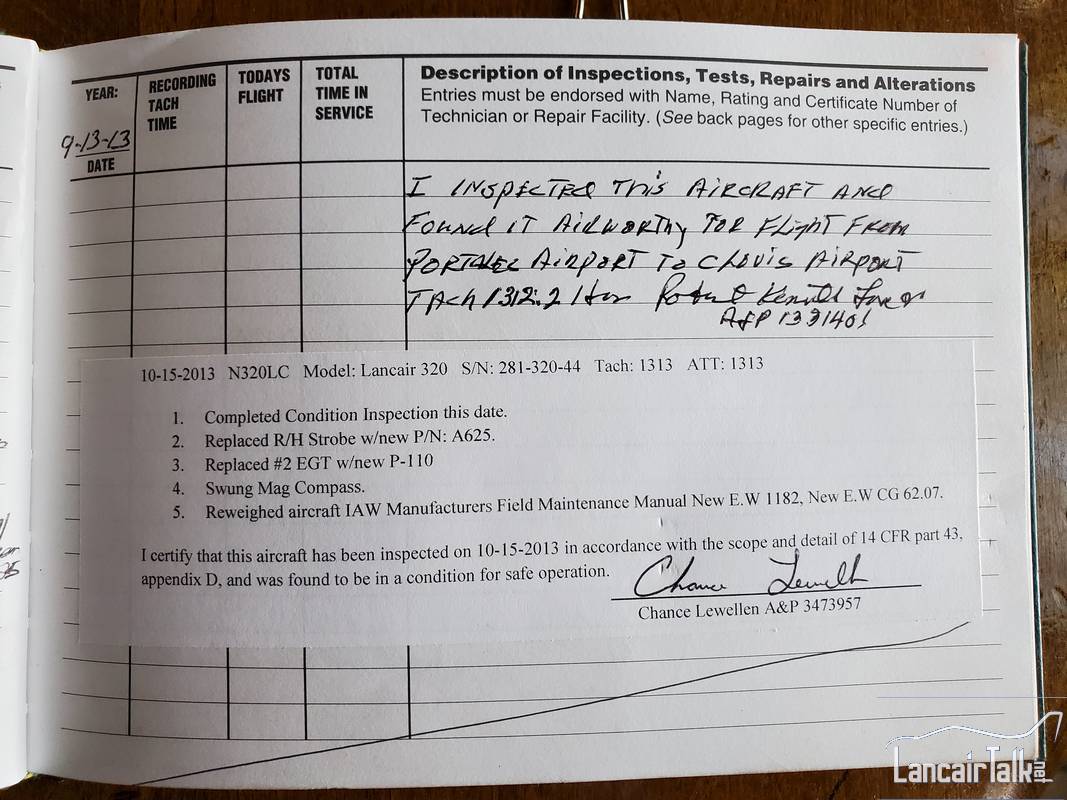 YEAR:
9-13-13
DATE
RECORDING
TACH
TIME
TODAYS
FLIGHT
TOTAL
TIME IN
SERVICE
Description of Inspections, Tests, Repairs and Alterations
Entries must be endorsed with Name, Rating and Certificate Number of
Technician or Repair Facility. (See back pages for other specific entries.)
I INSPECTED THIS AIRCRAFT AND
FOUND IT AIRWORTHY FOR FLIGHT FROM
AIRPORT TO CLOVIS AIRPORT
TACH 1312.2 Hrs Robert
A&P 1331401
10-15-2013 N320LC Model: Lancair 320 S/N: 281-320-44 Tach: 1313 ATT: 1313
1. Completed Condition Inspection this date.
2. Replaced R/H Strobe w/new P/N: A625.
3. Replaced #2 EGT w/new P-110
4. Swung Mag Compass.
5. Reweighed aircraft IAW Manufacturers Field Maintenance Manual New E.W 1182, New E.W CG 62.07.
I certify that this aircraft has been inspected on 10-15-2013 in accordance with the scope and detail of 14 CFR part 43,
appendix D, and was found to be in a condition for safe operation.
Chance Lewellen
Chance Lewellen A&P 3473957
LancairTalk.net